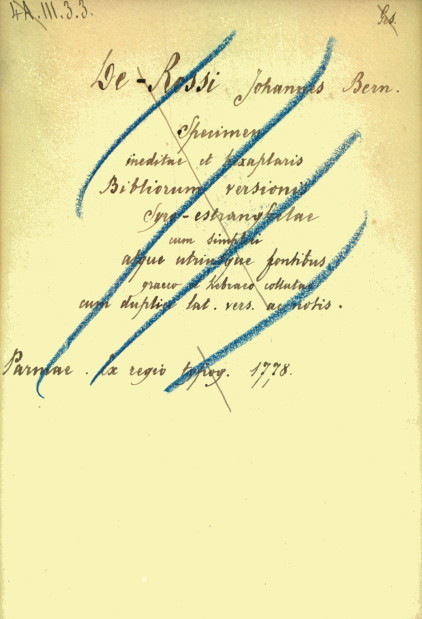 4A.III.3.3.
De-Rossi Johannes Bern.
Specimen
ineditae et hexaplaris
Bibliorum versionis
Syro-estranghelae
cum simplici
atque utriusque fontibus
graeco et hebraeo collatae
cum duplici lat. vers. ac notis.
Parmae. Ex regio typog. 1778.